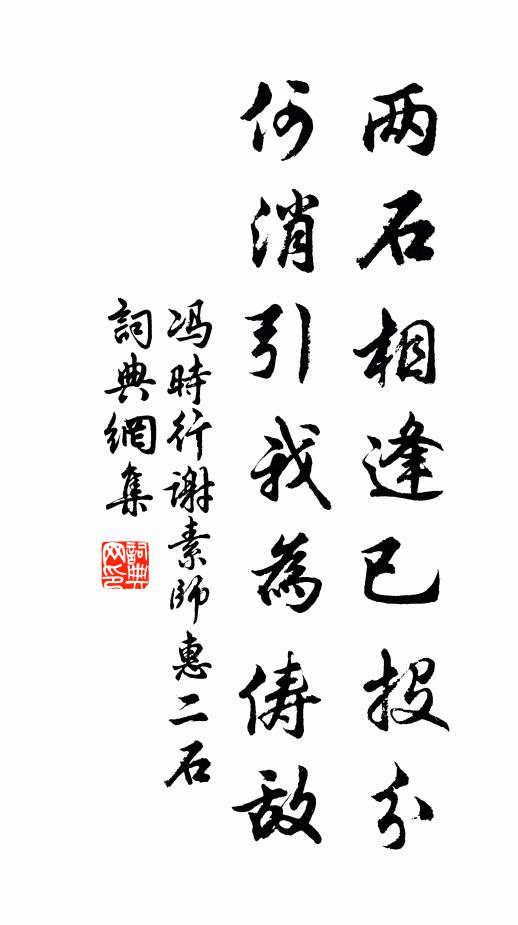 两石相逢已投分
何消引我為俦敌
冯時行谢素師惠二石
詞典網集
詞典网印